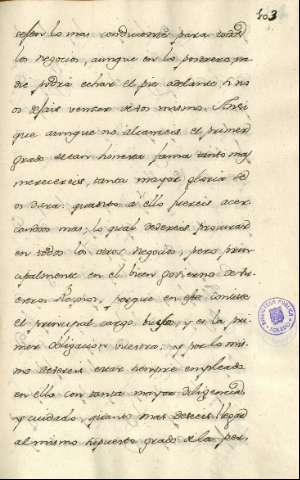 403
lo mas conduciente para todos
los negocios, aunque en los postreros na
die podrá echar el pie adelante si no
os dejais vencer de vos mismo. Ansi
que aunque no alcanceis el primer
grado de tan honrosa fama tanto mas
merecereis, tanta mayor gloria se
os dará quanto a ello fuereis acer
candoos mas, lo qual debereis procurar
en todos los otros negocios, pero prin
cipalmente en el buen govierno de
Reynos, porque en este consiste
el principal cargo y es la pri
mer obligacion vuestra, y por lo mis
mo debereis estar siempre empleado
en ello con tanta mayor diligencia
y cuidado, quanto mas deseeis llegar
al mismo supuesto grado de la per
BIBLIOTECA PUBLICA
TOLEDO